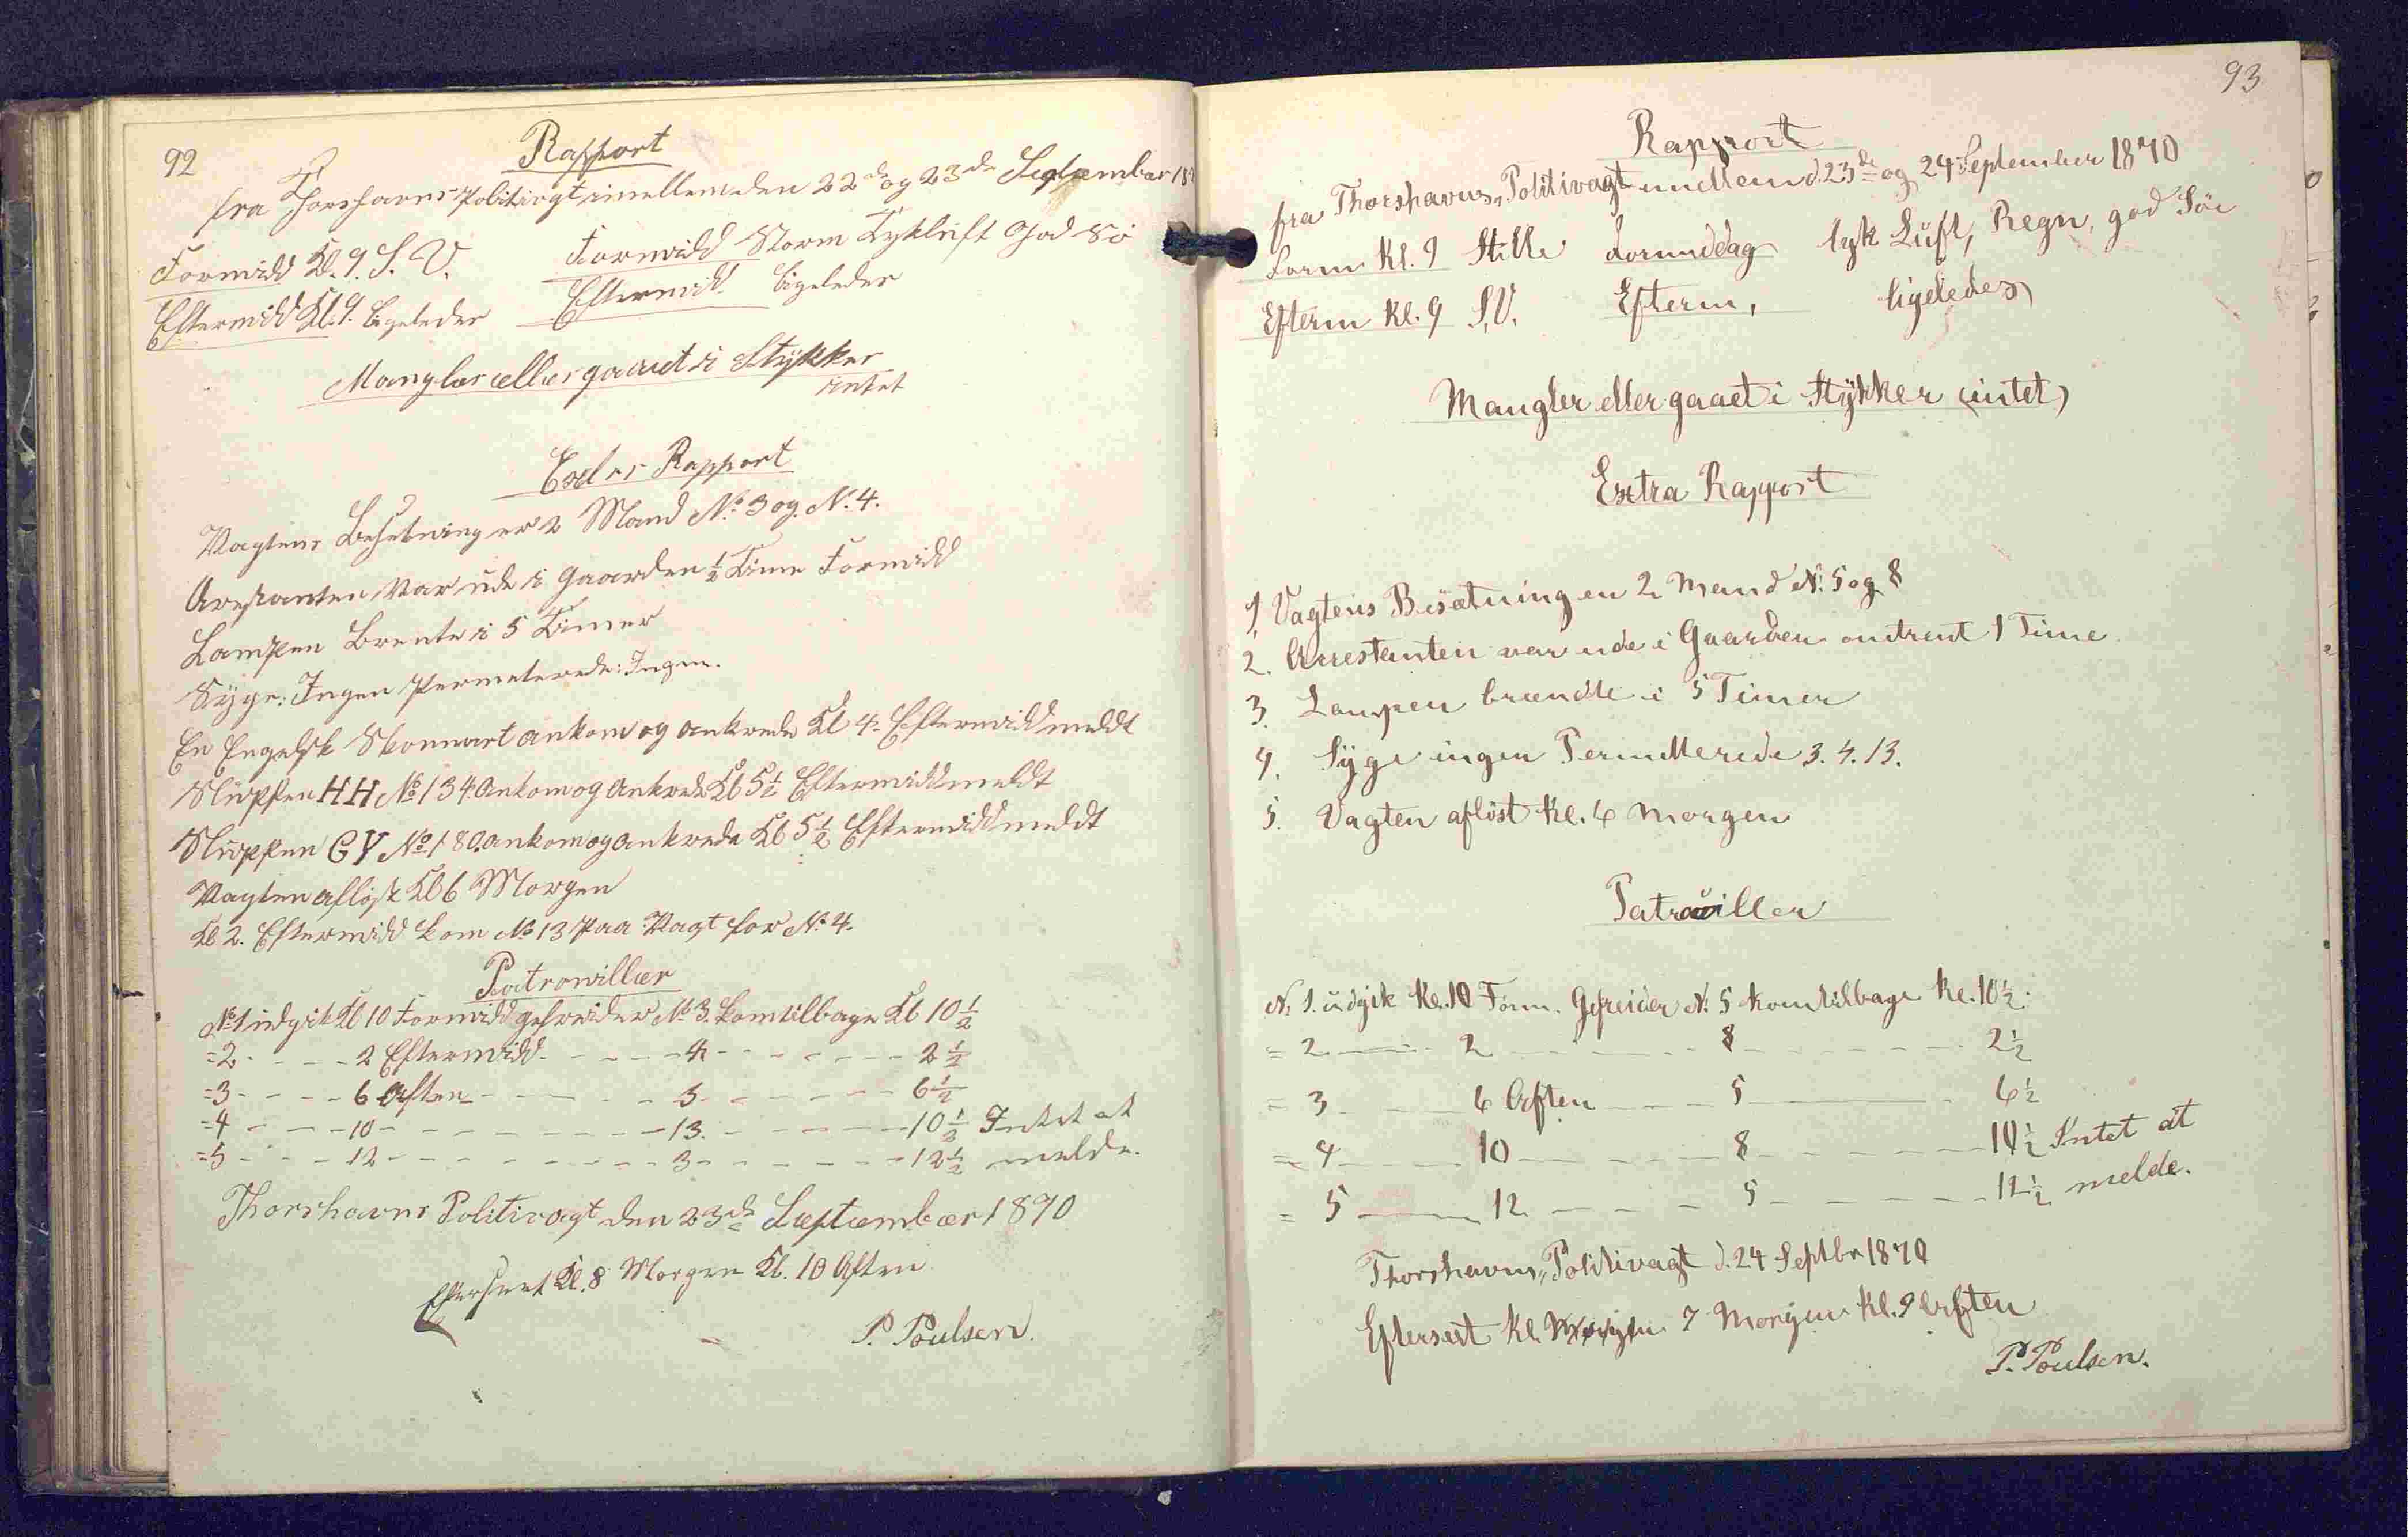 92
Rapport
fra Thorshavns Politivagt imellem den 22de og 23de September 18
Formidd Kl. 9. S. V. Formidd Storm Tykluft God Sö
Eftermidd Kl. 9. ligeledes Eftermidd ligeledes
Mangler eller gaaet i Stykker
intet
Extra Rapport
Vagtens Besetning er 2 Mand No. 3 og N. 4.
Arestanten Var ude i Gaarden 1/2 Time Formidd
Lampen Brente i 5 Timer
Syge: Ingen Permeterede: Ingen.
En Engelsk Skonnert ankom og ankrede Kl 4 Eftermidd meldt
Sluppen HH No 134 Ankom og Ankrede Kl 5 1/2 Eftermidd meldt
Sluppen GY No 180. ankom og ankrede Kl 5 1/2 Eftermidd meldt
Vagten aflöst Kl 6 Morgen
Kl 2. Eftermidd kom No 13 paa Vagt for N. 4.
Patrouiller
No 1 udgik Kl 10 Formidd gefreider No 3. kom tilbage Kl 10 1/2
=2 - - - - 2 Eftermidd - - - - 4 - - - - - - 2 1/2
=3 - - - - 6 Aften - - - - - 3 - - - - - - 6 1/2
=4 - - - - 10 - - - - - - - 13. - - - - - 10 1/2 Intet at
=5 - - - - 12 - - - - - - - 3 - - - - - - 12 1/2 melde.
Thorshavns Politivagt den 23de September 1870
Efterseet Kl. 8 Morgen Kl. 10 Aften
P. Poulsen.
93
Rapport
fra Thorshavns Politivagt imellem d. 23de og 24 September 1870
Form Kl. 9 Stille Formiddag tyk Luft, Regn, god Söe
Efterm Kl. 9 S.V. Efterm, ligeledes
Mangler eller gaaet i Stykker (intet)
Extra Rapport
1, Vagtens Besætning er 2 Mand N. 5 og 8
2. Arrestanten var ude i Gaarden omtrent 1 Time
3. Lampen brændte i 5 Timer
4. Syge ingen Permitterede 3. 4. 13.
5. Vagten aflöst Kl. 6 Morgen
Patrouiller
N. 1. udgik Kl. 10 Form. Gefreider N. 5 kom tilbage Kl. 10 1/2.
= 2 - - - 2 - - - - 8 - - - - - 2 1/2
= 3 - - - 6 Aften - - - 5 - - - - 6 1/2
= 4 - - - 10 - - - - 8 - - - - - 10 1/2 Intet at
= 5 - - - 12 - - - - 5 - - - - - 12 1/2 melde.
Thorshavns Politivagt d. 24 Septbr 1870
Efterseet Kl. 7 Morgen Kl. 9 Aften
P. Poulsen.